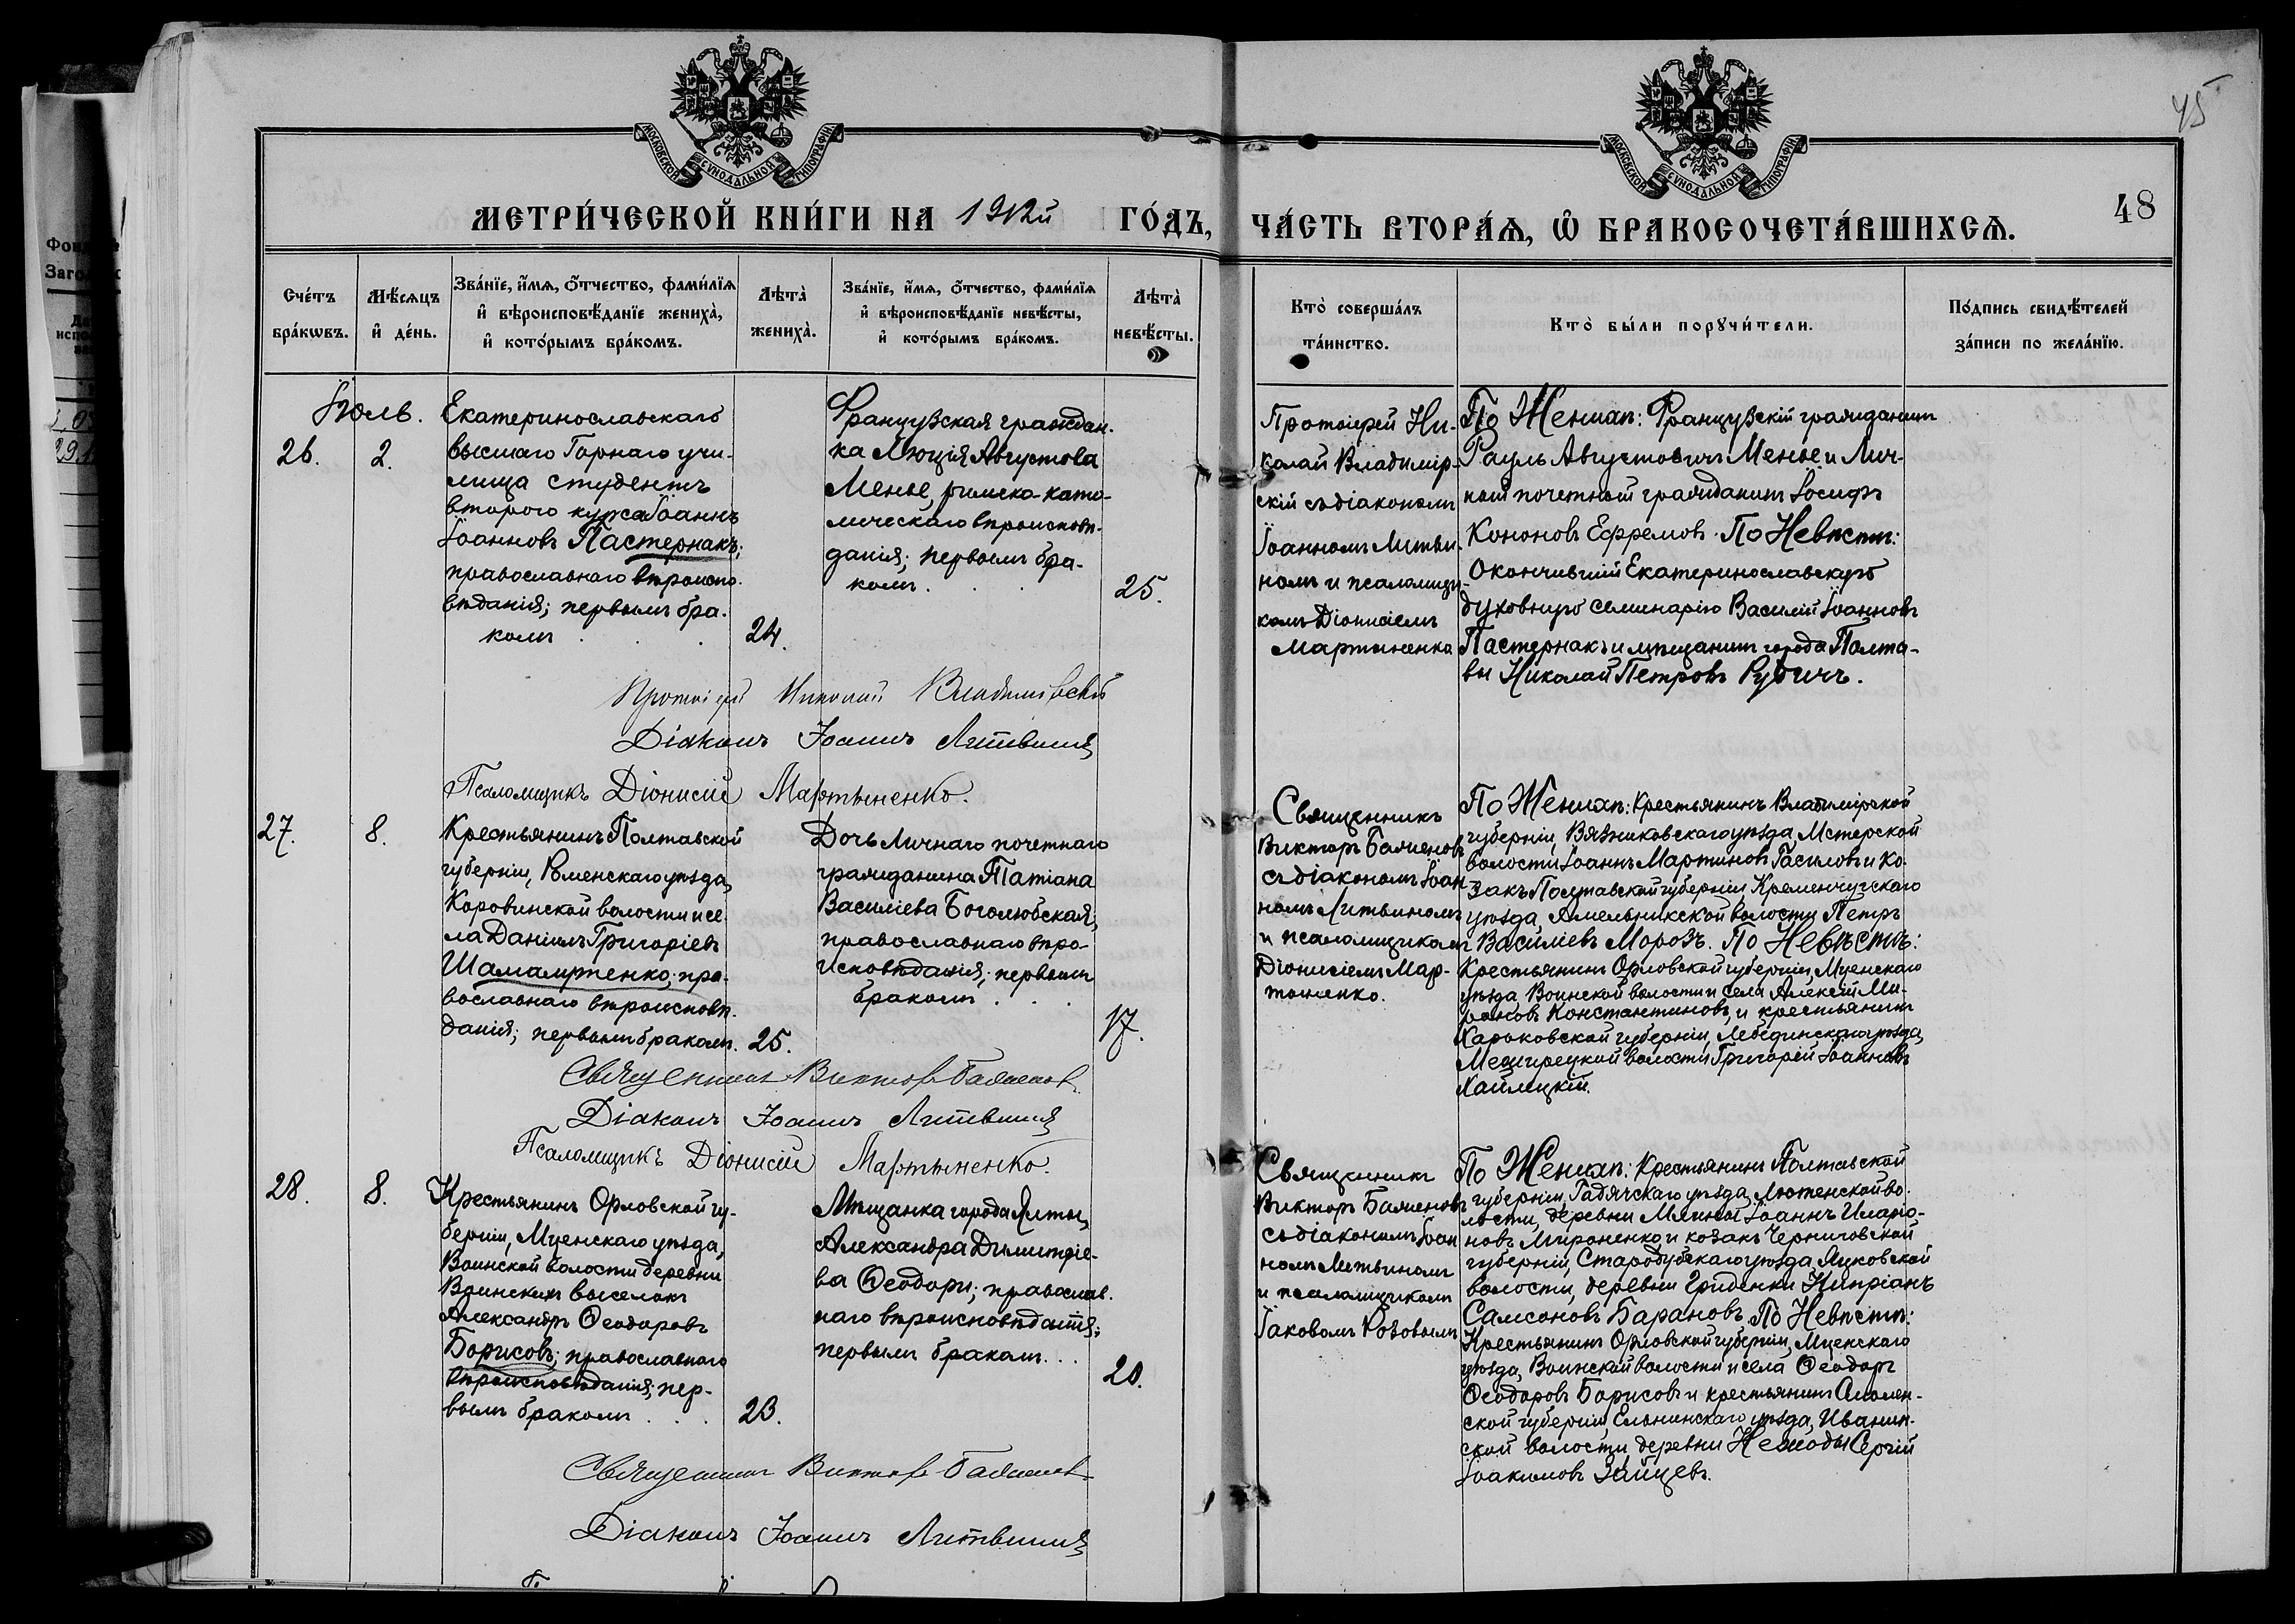 МОСКОВСКОЙ СѴНОДАЛЬНОЙ ТИПОГРАФІИ
МОСКОВСКОЙ СѴНОДАЛЬНОЙ ТИПОГРАФІИ
45
48
МЕТРИ́ЧЕСКОЙ КНИ́ГИ НА 1912й ГО́ДЪ,
ЧА́СТЬ ВТОРА́Ѧ, Ѡ҆ БРАКОСОЧЕТА́ВШИХСѦ.
Сче́тъ бра́кѡвъ.
Мѣ́сѧцъ и҆ де́нь.
Зва́нїе, и҆́мѧ, ѻ҆́тчество, фами́лїѧ
и҆ вѣроисповѣ́данїе жениха̀,
и҆ кото́рымъ бра́комъ.
Лѣта̀ жениха̀.
Зва́нїе, и҆́мѧ, ѻ҆́тчество, фами́лїѧ
и҆ вѣроисповѣ́данїе невѣ́сты,
и҆ кото́рымъ бра́комъ.
Лѣта̀ невѣ́сты.
Кто̀ соверша́лъ та́инство.
Кто̀ бы́ли порꙋчи́тели.
По́дпись свидѣ́телей за́писи по жела́нїю.
Іюль.
26.
2.
Екатеринославскаго
высшаго Горнаго учи-
лища студентъ
второго курса Іоаннъ
Іоанновъ Пастернакъ;
православнаго вѣроиспо-
вѣданія; первымъ бра-
комъ . . .
24.
Французская граждан-
ка Люція Августова
Менье, римско-като-
лическаго вѣроисповѣ-
данія; первымъ бра-
комъ . . .
25.
Протоіерей Ни-
колай Владимір-
скій съ діакономъ
Іоанномъ Литви-
номъ и псаломщи-
комъ Діонисіемъ
Мартыненко
По Женихѣ: Французскій гражданинъ
Рауль Августовичъ Менье и Лич-
ный почетный гражданинъ Іосифъ
Кононовъ Ефремовъ. По Невѣстѣ:
Окончившій Екатеринославскую
духовную семинарію Василій Іоанновъ
Пастернакъ и мѣщанинъ города Полта-
вы Николай Петровъ Рудичъ.
Протоіерей Николай Владимірскій
Діаконъ Іоаннъ Литвинъ
Псаломщикъ Діонисій Мартыненко.
27.
8.
Крестьянинъ Полтавской
губерніи, Роменскаго уѣзда,
Коровинской волости и се-
ла Даніилъ Григоріевъ
пра-
вославнаго вѣроисповѣ-
данія; первымъ бракомъ.
25.
Дочь Личнаго почетнаго
гражданина Татіана
Василіева Боголюбская;
православнаго вѣро-
исповѣданія; первымъ
бракомъ . . .
17.
Священникъ
Викторъ Баженовъ
съ діакономъ Іоан-
номъ Литвиномъ
и псаломщикомъ
Діонисіемъ Мар-
тыненко.
По Женихѣ: Крестьянинъ Владимірской
губерніи, Вязниковскаго уѣзда, Мстерской
волости Іоаннъ Мартиновъ Гасиловъ и ко-
закъ Полтавской губерніи Кременчугскаго
уѣзда, Амельникской волости Петръ
Василіевъ Морозъ. По Невѣстѣ:
Крестьянинъ Орловской губерніи, Мценскаго
уѣзда, Воинской волости и села Алексій Ми-
роновъ Константиновъ, и крестьянинъ
Харьковской губерніи, Лебединскаго уѣзда,
Межирецкой волости Григорій Іоанновъ
Священникъ Викторъ Баженовъ
Діаконъ Іоаннъ Литвинъ
Псаломщикъ Діонисій Мартыненко.
28.
8.
Крестьянинъ Орловской гу-
берніи, Мценскаго уѣзда,
Воинской волости деревни
Воинскихъ выселокъ
Александръ Ѳеодоровъ
Борисовъ; православнаго
вѣроисповѣданія; пер-
вымъ бракомъ . . .
23.
Мѣщанка города Ялты,
Александра Димитріе-
ва Ѳеодори; православ-
наго вѣроисповѣданія;
первымъ бракомъ . . .
20.
Священникъ
Викторъ Баженовъ
съ діакономъ Іоан-
номъ Литвиномъ
и псаломщикомъ
Іаковомъ Розовымъ
По Женихѣ: Крестьянинъ Полтавской
губерніи, Гадячскаго уѣзда, Лютенской во-
лости, деревни Млины Іоаннъ Иларіо-
новъ Мироненко и козакъ Черниговской
губерніи, Стародубскаго уѣзда,
волости, деревни Гриденки Кипріанъ
Самсоновъ Барановъ. По Невѣстѣ:
Крестьянинъ Орловской губерніи, Мценскаго
уѣзда, Воинской волости и села Ѳеодоръ
Ѳеодоровъ Борисовъ и крестьянинъ Смолен-
ской губерніи, Ельнинскаго уѣзда, Иванин-
ской волости, деревни Сергій
Іоакимовъ Зайцевъ.
Священникъ Викторъ Баженовъ
Діаконъ Іоаннъ Литвинъ